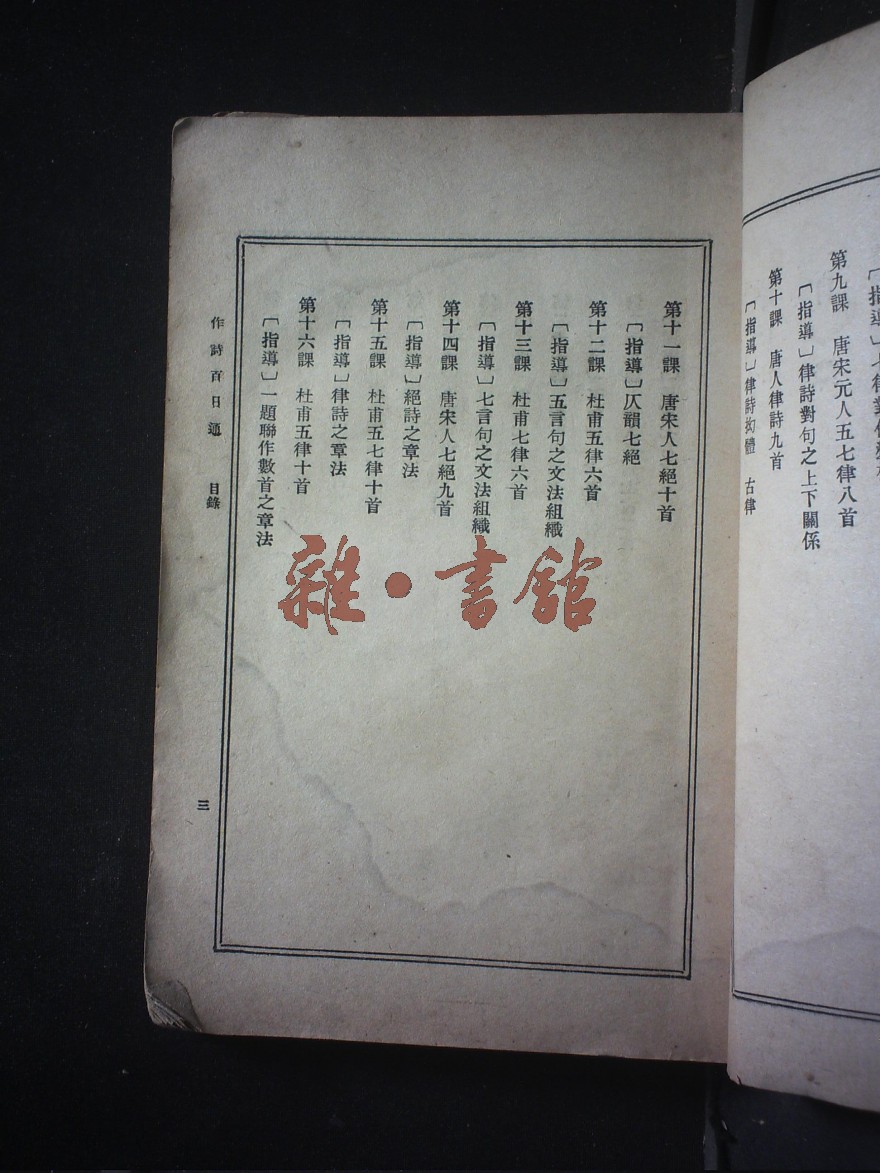 第九課　唐宋元人五七律八首
〔指導〕律詩對句之上下關係
第十課　唐人律詩九首
〔指導〕律詩拗體　古律
第十一課　唐宋人七絕十首
〔指導〕仄韻七絕
第十二課　杜甫五律六首
〔指導〕五言句之文法組織
第十三課　杜甫七律六首
〔指導〕七言句之文法組織
第十四課　唐宋人七絕九首
〔指導〕絕詩之章法
第十五課　杜甫五七律十首
〔指導〕律詩之章法
第十六課　杜甫五律十首
〔指導〕一題聯作數首之章法
作詩百日通　目錄
三
雜·書館